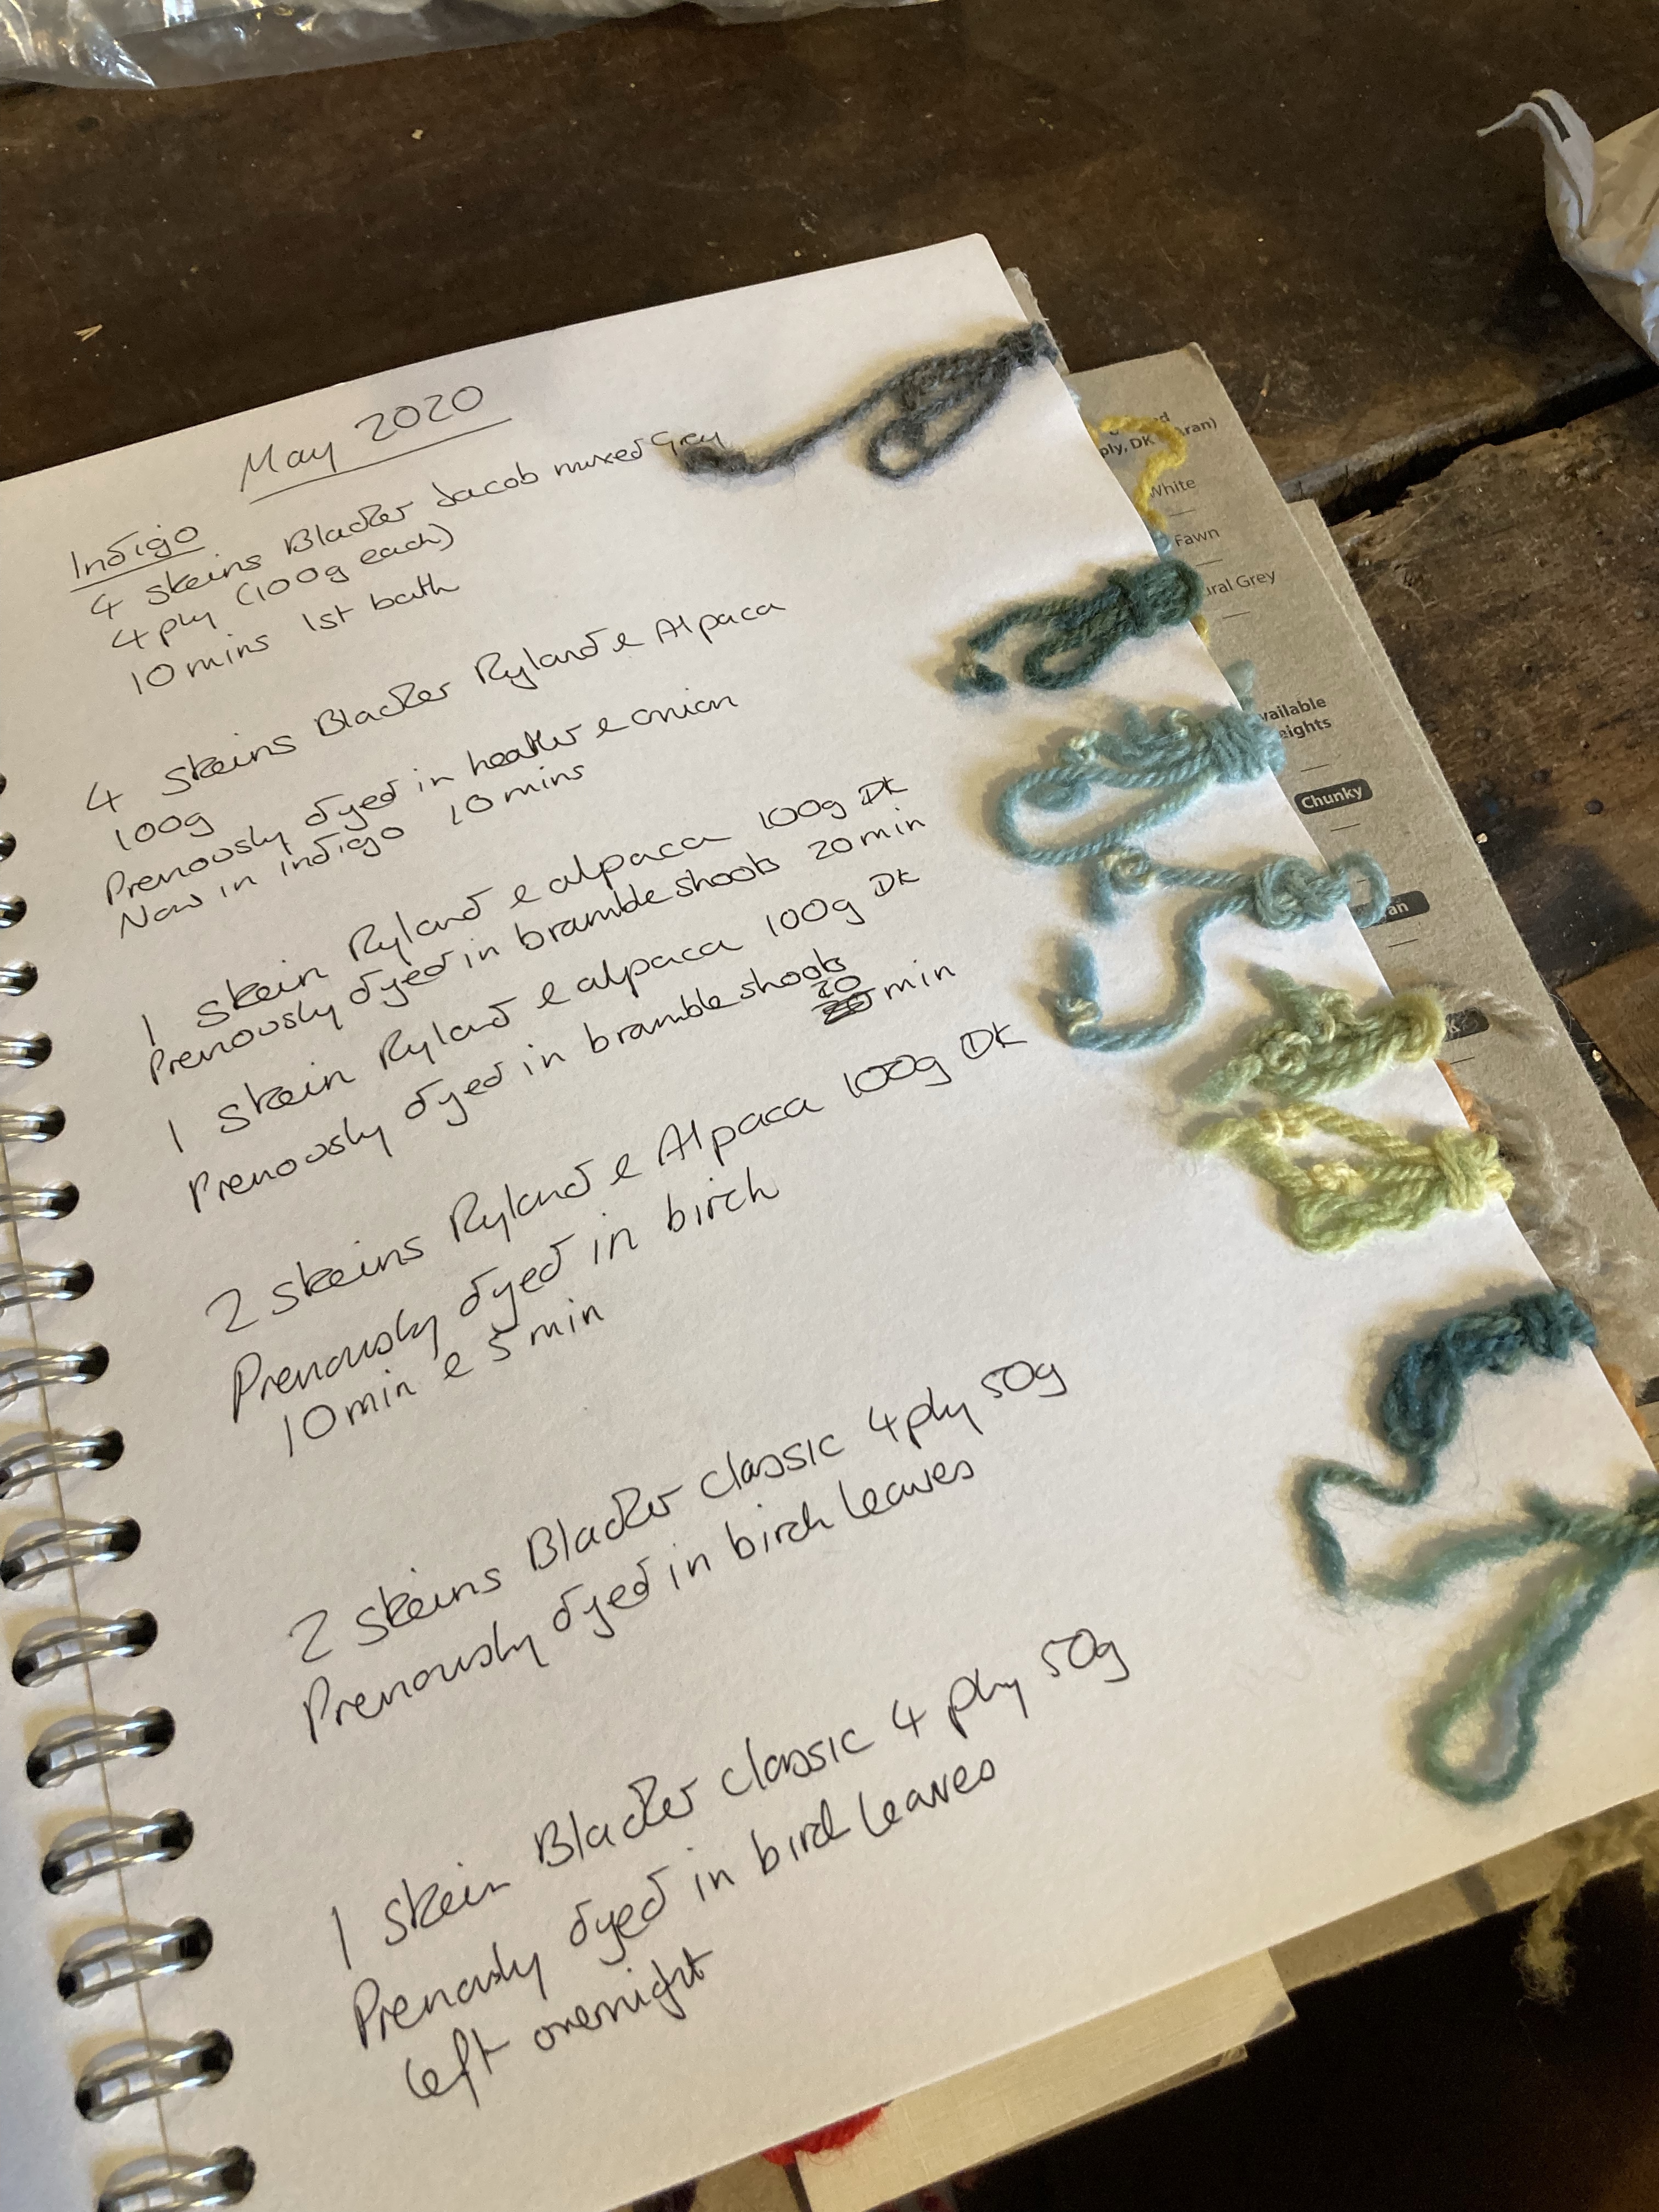 May 2020
Indigo
4 skeins Blacker Jacob mixed Grey
4 ply (100g each)
10 mins 1st bath
4 skeins Blacker Ryland & Alpaca
100g
Previously dyed in heather & onion
Now in indigo 10 mins
1 skein Ryland & alpaca 100g DK
Previously dyed in bramble shoots 20 min
1 skein Ryland & alpaca 100g DK
Previously dyed in bramble shoots
20 min
2 skeins Ryland & Alpaca 100g DK
Previously dyed in birch
10 min & 5 min
2 skeins Blacker classic 4 ply 50g
Previously dyed in birch leaves
1 skein Blacker classic 4 ply 50g
Previously dyed in birch leaves
left overnight
ply, DK Aran)
White
Fawn
ural Grey
vailable
eights
Chunky
an